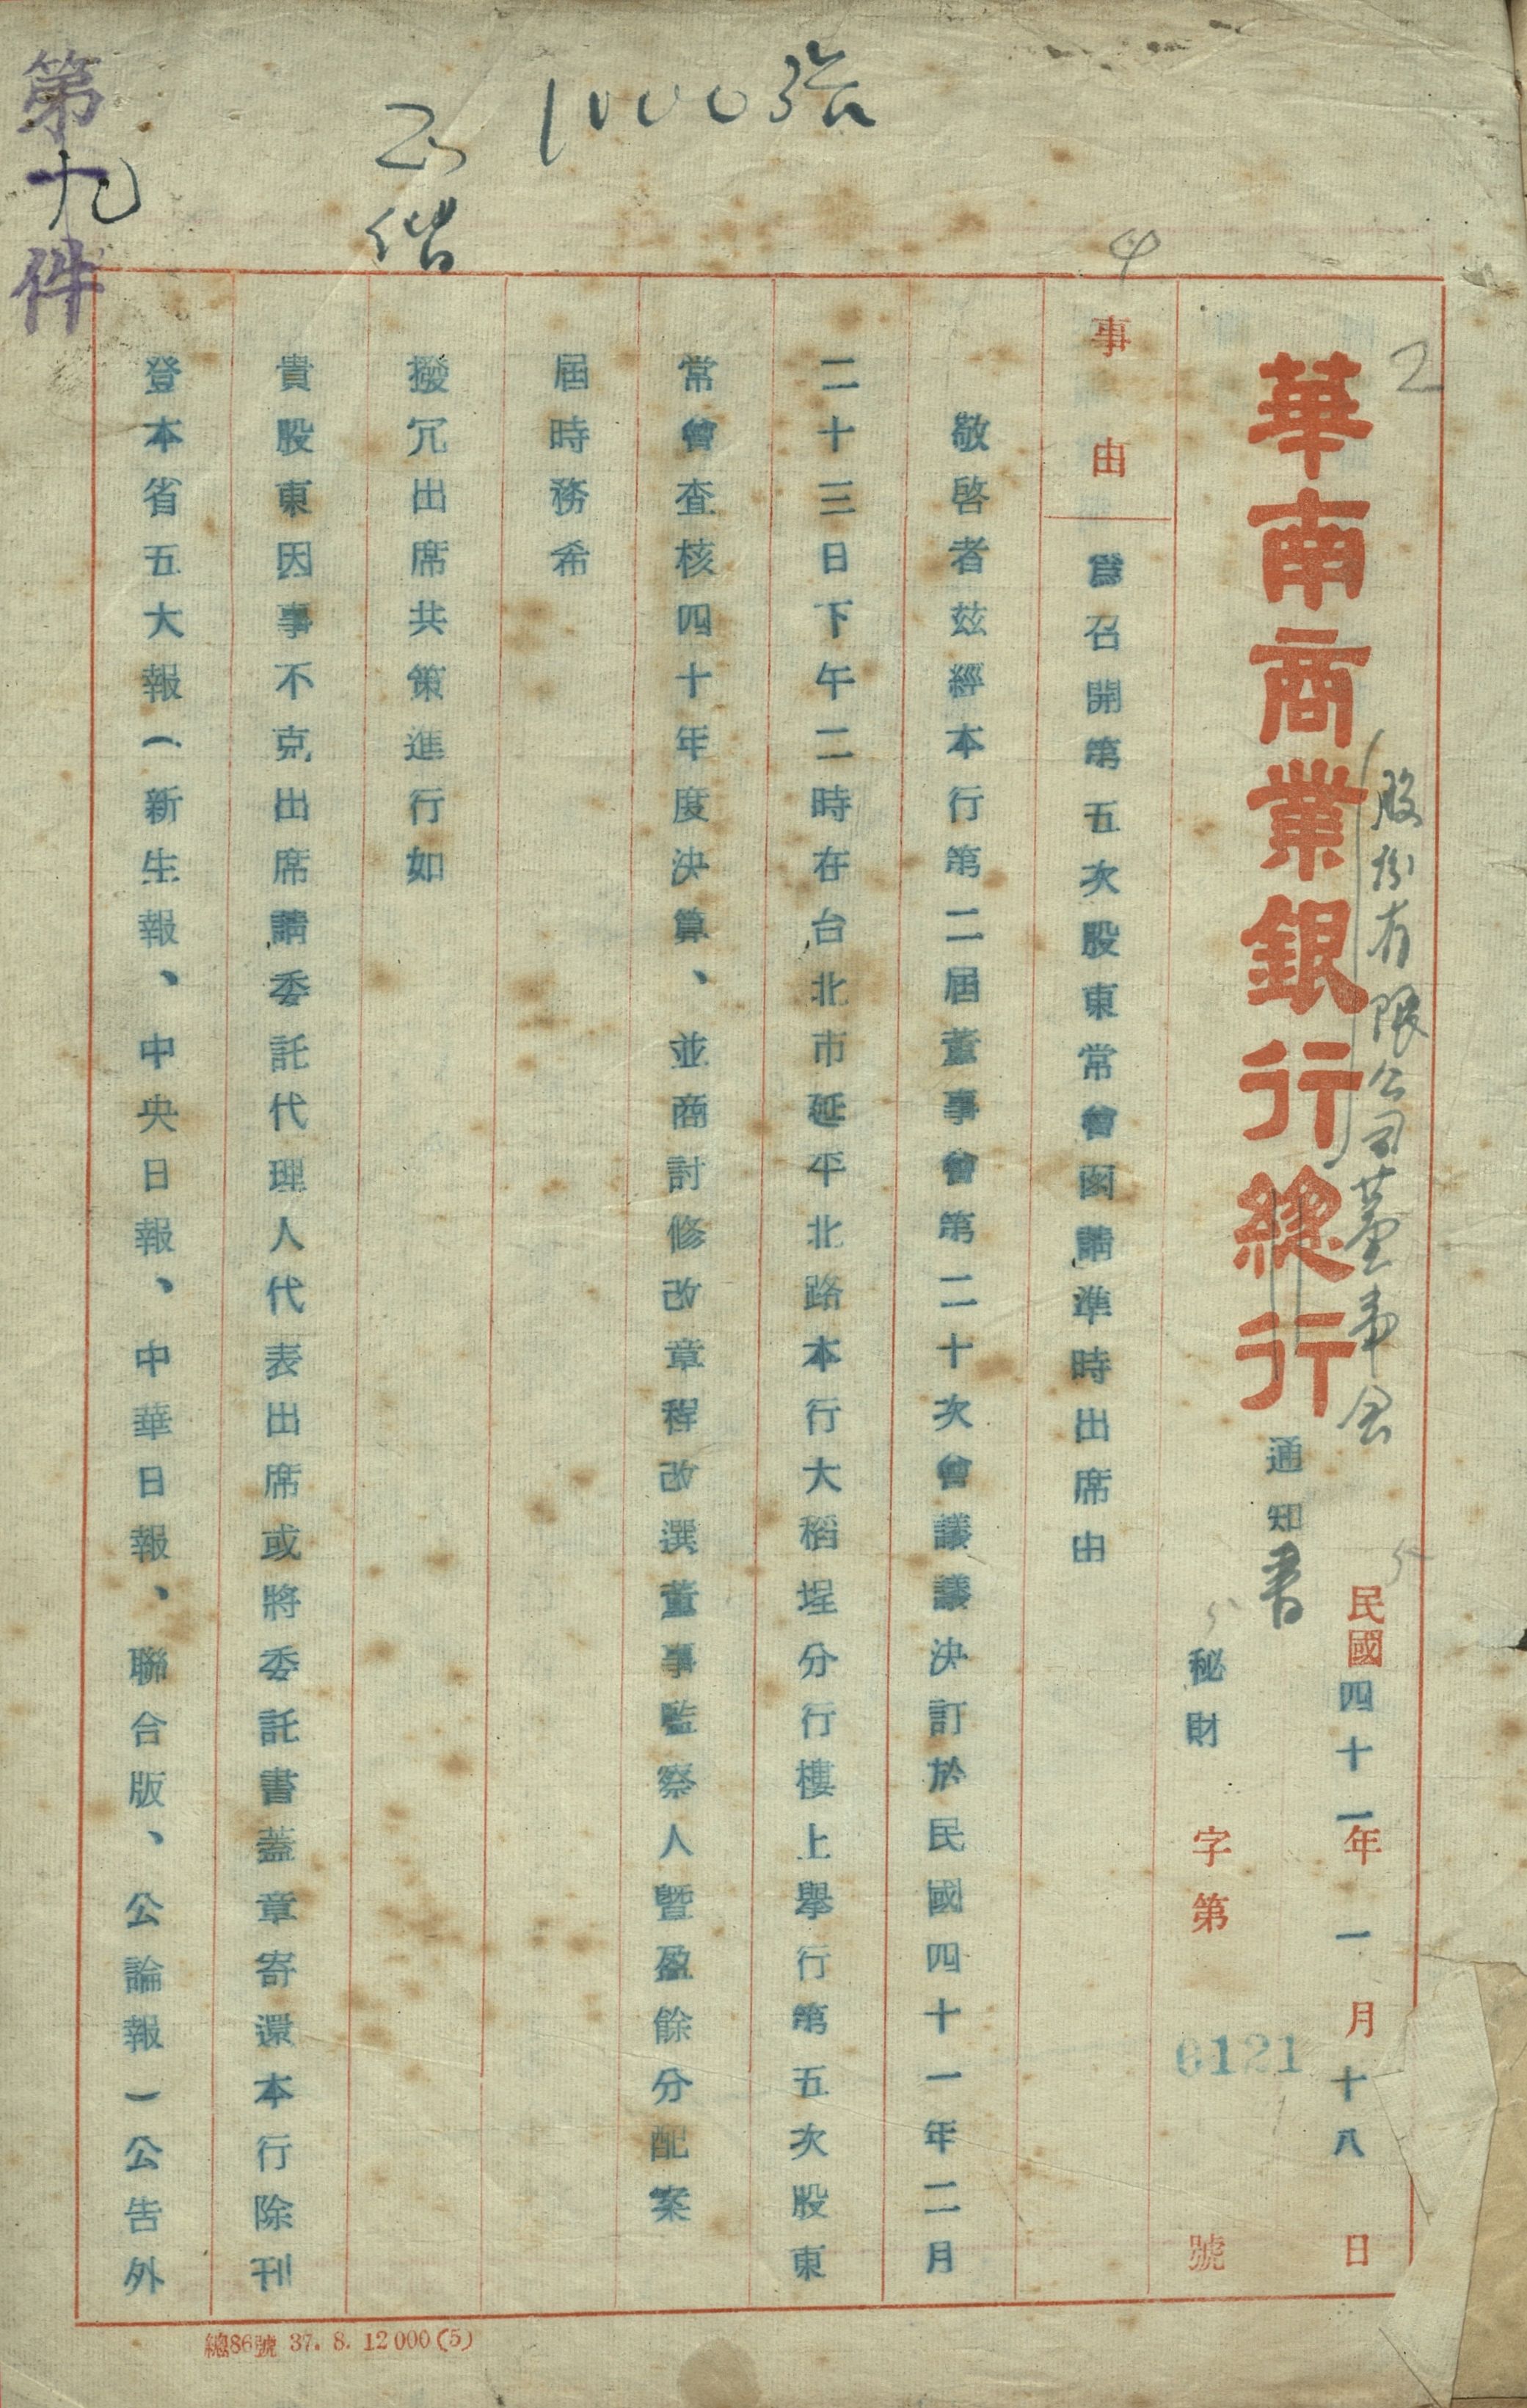 第九件
1000張
2
4
華南商業銀行總行
(股份有限公司)董事会
通知書
民國四十一年一月十八日
秘財字第0121號
事由
為召開第五次股東常會函請準時出席由
敬啓者茲經本行第二屆董事會第二十次會議議決訂於民國四十一年二月
二十三日下午二時在台北市延平北路本行大稻埕分行樓上舉行第五次股東
常會查核四十年度決算、並商討修改章程改選董事監察人暨盈餘分配案
屆時務希
撥冗出席共策進行如
貴股東因事不克出席請委託代理人代表出席或將委託書蓋章寄還本行除刊
登本省五大報(新生報、中央日報、中華日報、聯合版、公論報)公告外
總86號 37. 8. 12000(5)